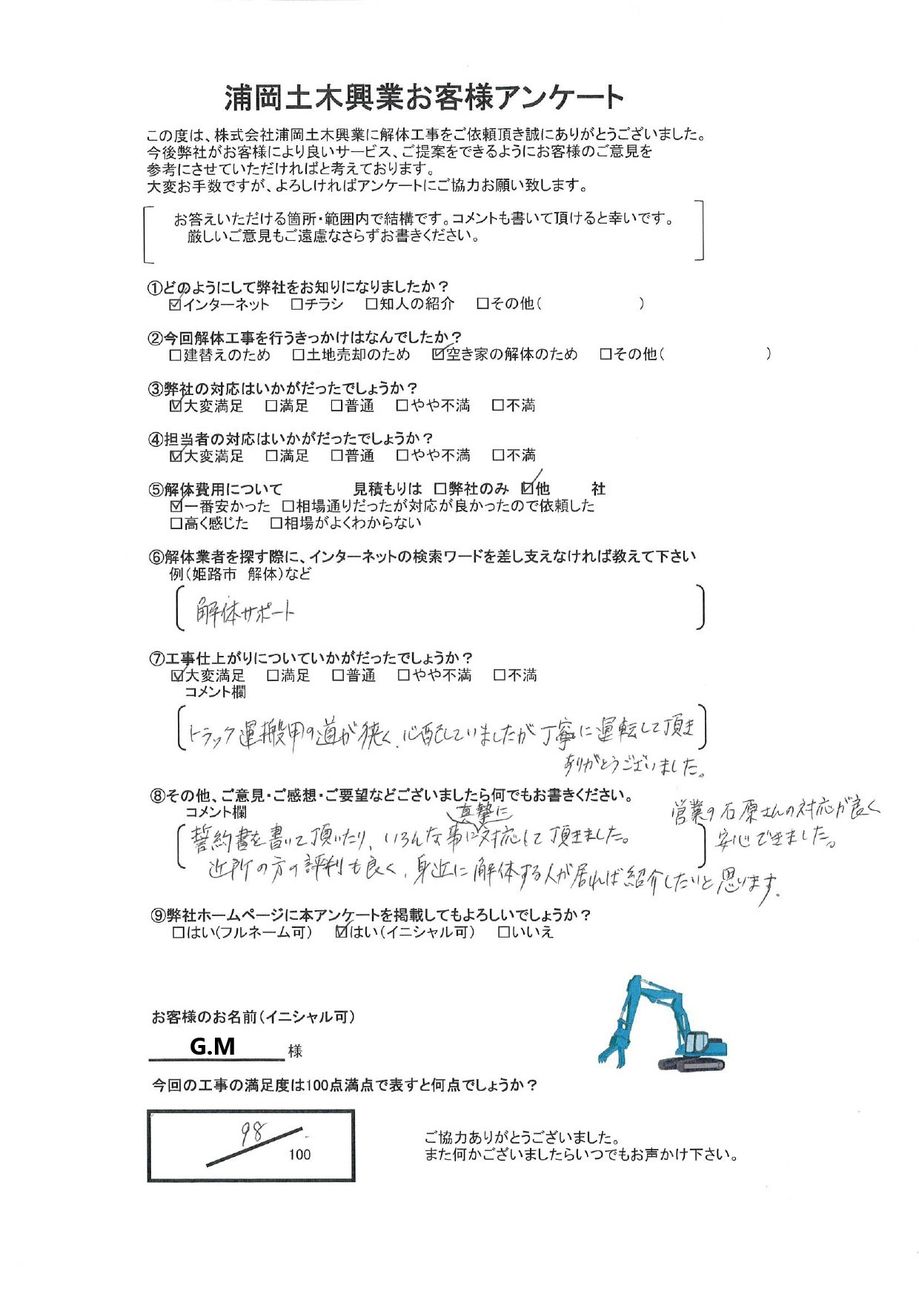 浦岡土木興業お客様アンケート
この度は、株式会社浦岡土木興業に解体工事をご依頼頂き誠にありがとうございました。
今後弊社がお客様により良いサービス、ご提案をできるようにお客様のご意見を
参考にさせていただければと考えております。
大変お手数ですが、よろしければアンケートにご協力お願い致します。
お答えいただける箇所・範囲内で結構です。コメントも書いて頂けると幸いです。
厳しいご意見もご遠慮なさらずお書きください。
①どのようにして弊社をお知りになりましたか?
☑インターネット □チラシ □知人の紹介 □その他( )
②今回解体工事を行うきっかけはなんでしたか?
□建替えのため □土地売却のため ☑空き家の解体のため □その他( )
③弊社の対応はいかがだったでしょうか?
☑大変満足 □満足 □普通 □やや不満 □不満
④担当者の対応はいかがだったでしょうか?
☑大変満足 □満足 □普通 □やや不満 □不満
⑤解体費用について 見積もりは □弊社のみ ☑他 社
☑一番安かった □相場通りだったが対応が良かったので依頼した
□高く感じた □相場がよくわからない
⑥解体業者を探す際に、インターネットの検索ワードを差し支えなければ教えて下さい
例(姫路市 解体)など
解体サポート
⑦工事仕上がりについていかがだったでしょうか?
☑大変満足 □満足 □普通 □やや不満 □不満
コメント欄
トラック運搬用の道が狭く、心配していましたが丁寧に運転して頂き
ありがとうございました。
⑧その他、ご意見・ご感想・ご要望などございましたら何でもお書きください。
コメント欄
誓約書を書いて頂いたり、いろんな事に真摯に対応して頂きました。
近所の方の評判も良く、身近に解体する人が居れば紹介したいと思います。
営業の石原さんの対応が良く
安心できました。
⑨弊社ホームページに本アンケートを掲載してもよろしいでしょうか?
□はい(フルネーム可) ☑はい(イニシャル可) □いいえ
お客様のお名前(イニシャル可)
G.M 様
今回の工事の満足度は100点満点で表すと何点でしょうか?
98/100
ご協力ありがとうございました。
また何かございましたらいつでもお声かけ下さい。